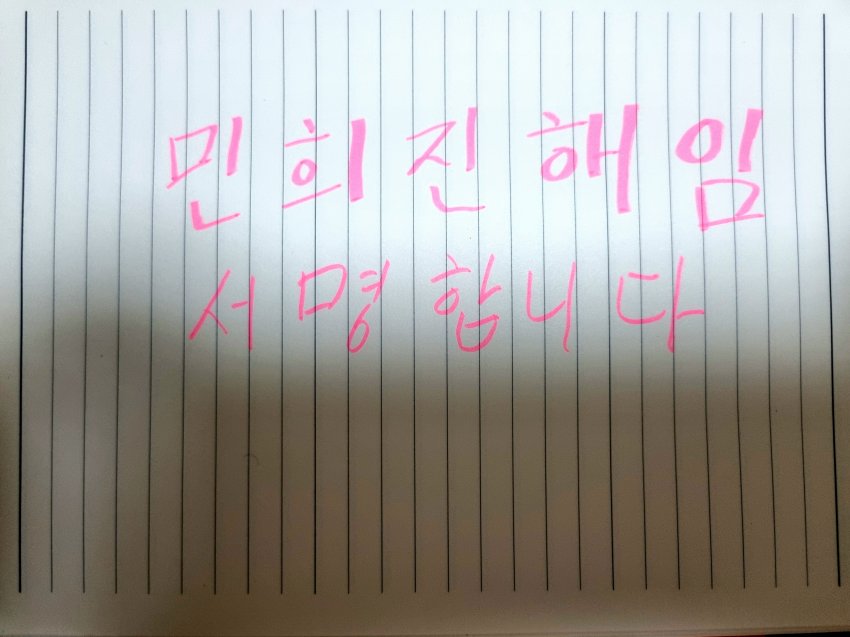 민희진 해임
서명합니다